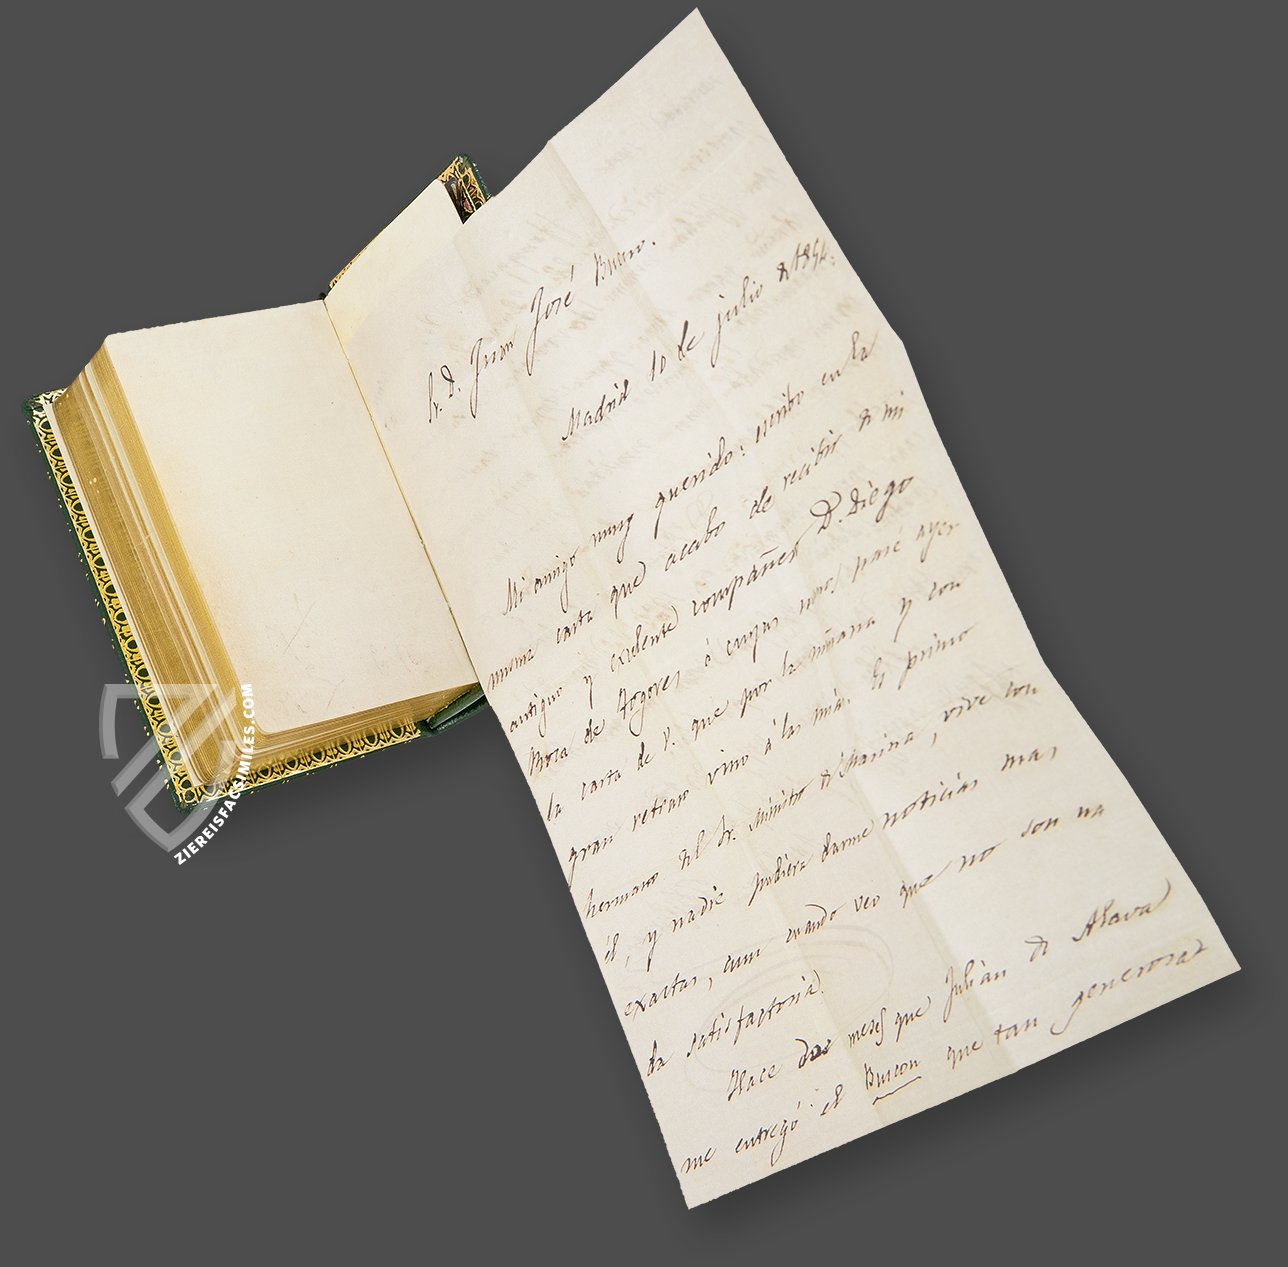 Sr. D. Juan José Bueno.
Madrid 10 de julio de 1854.
Mi amigo muy querido: escribo en la
misma carta que acabo de recibir de mi
antiguo y excelente compañero D. Diego
de Fogores ó cuyas manos pasé ayer
la carta de V. que por la mñana y con
gran retraso vino á las mias. Es primo
hermano del Sr. Ministro de Marina, vive con
él, y nadie pudiera darme noticias mas
exactas, aun cuando veo que no son na
da satisfactorias.
Hace dos meses que Julián de Alava
me entregó el Buscon que tan generosa
ZIEREISFACSIMILES.COM